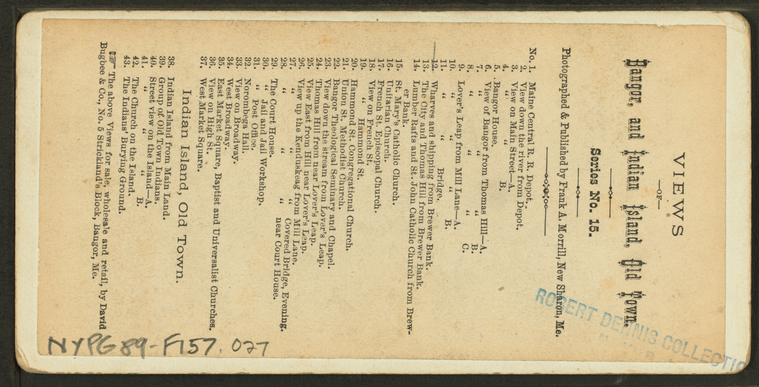 VIEWS
—OF—
Bangor, and Indian Island, Old Town.
Series No. 15.
Photographed & Published by Frank A. Morrill, New Sharon, Me.
No. 1. Maine Central R. R. Depot.
2. View down the river from Depot.
3. View on Main Street—A.
4. " " " B.
5. Bangor House.
6. View of Bangor from Thomas Hill—A.
7. " " " " B.
8. " " " " C.
9. Lover's Leap from Mill Lane—A.
10. " " " B.
11. " " Bridge.
12. Wharves and shipping from Brewer Bank.
13. The City and Thomas Hill from Brewer Bank.
14. Lumber Rafts and St. John Catholic Church from Brew-
er Bank.
15. St. Mary's Catholic Church.
16. Unitarian Church.
17. French St. Episcopal Church.
18. View on French St.
19. " Hammond St.
20. Hammond St. Congregational Church.
21. Union St. Methodist Church.
22. Bangor Theological Seminary and Chapel.
23. View down the stream from Lover's Leap.
24. Thomas Hill from near Lover's Leap.
25. View East from Hill near Lover's Leap.
26. View up the Kenduskeag from Mill Lane.
27. " " " Covered Bridge, Evening.
28. " " " near Court House.
29. The Court House.
30. " Jail and Jail Workshop.
31. " Post Office.
32. Norombega Hall.
33. View on Broadway.
34. West Broadway.
35. East Market Square, Baptist and Universalist Churches.
36. View on High St.
37. West Market Square.
Indian Island, Old Town.
38. Indian Island from Main Land.
39. Group of Old Town Indians.
40. Street view on the Island—A.
41. " " " B.
42. The Church on the Island.
43. The Indians' Burying Ground.
☞ The above Views for sale, wholesale and retail, by David
Bugbee & Co., No. 5 Strickland's Block, Bangor, Me.
ROBERT DENNIS COLLECTIO
NYPG89-F157.027